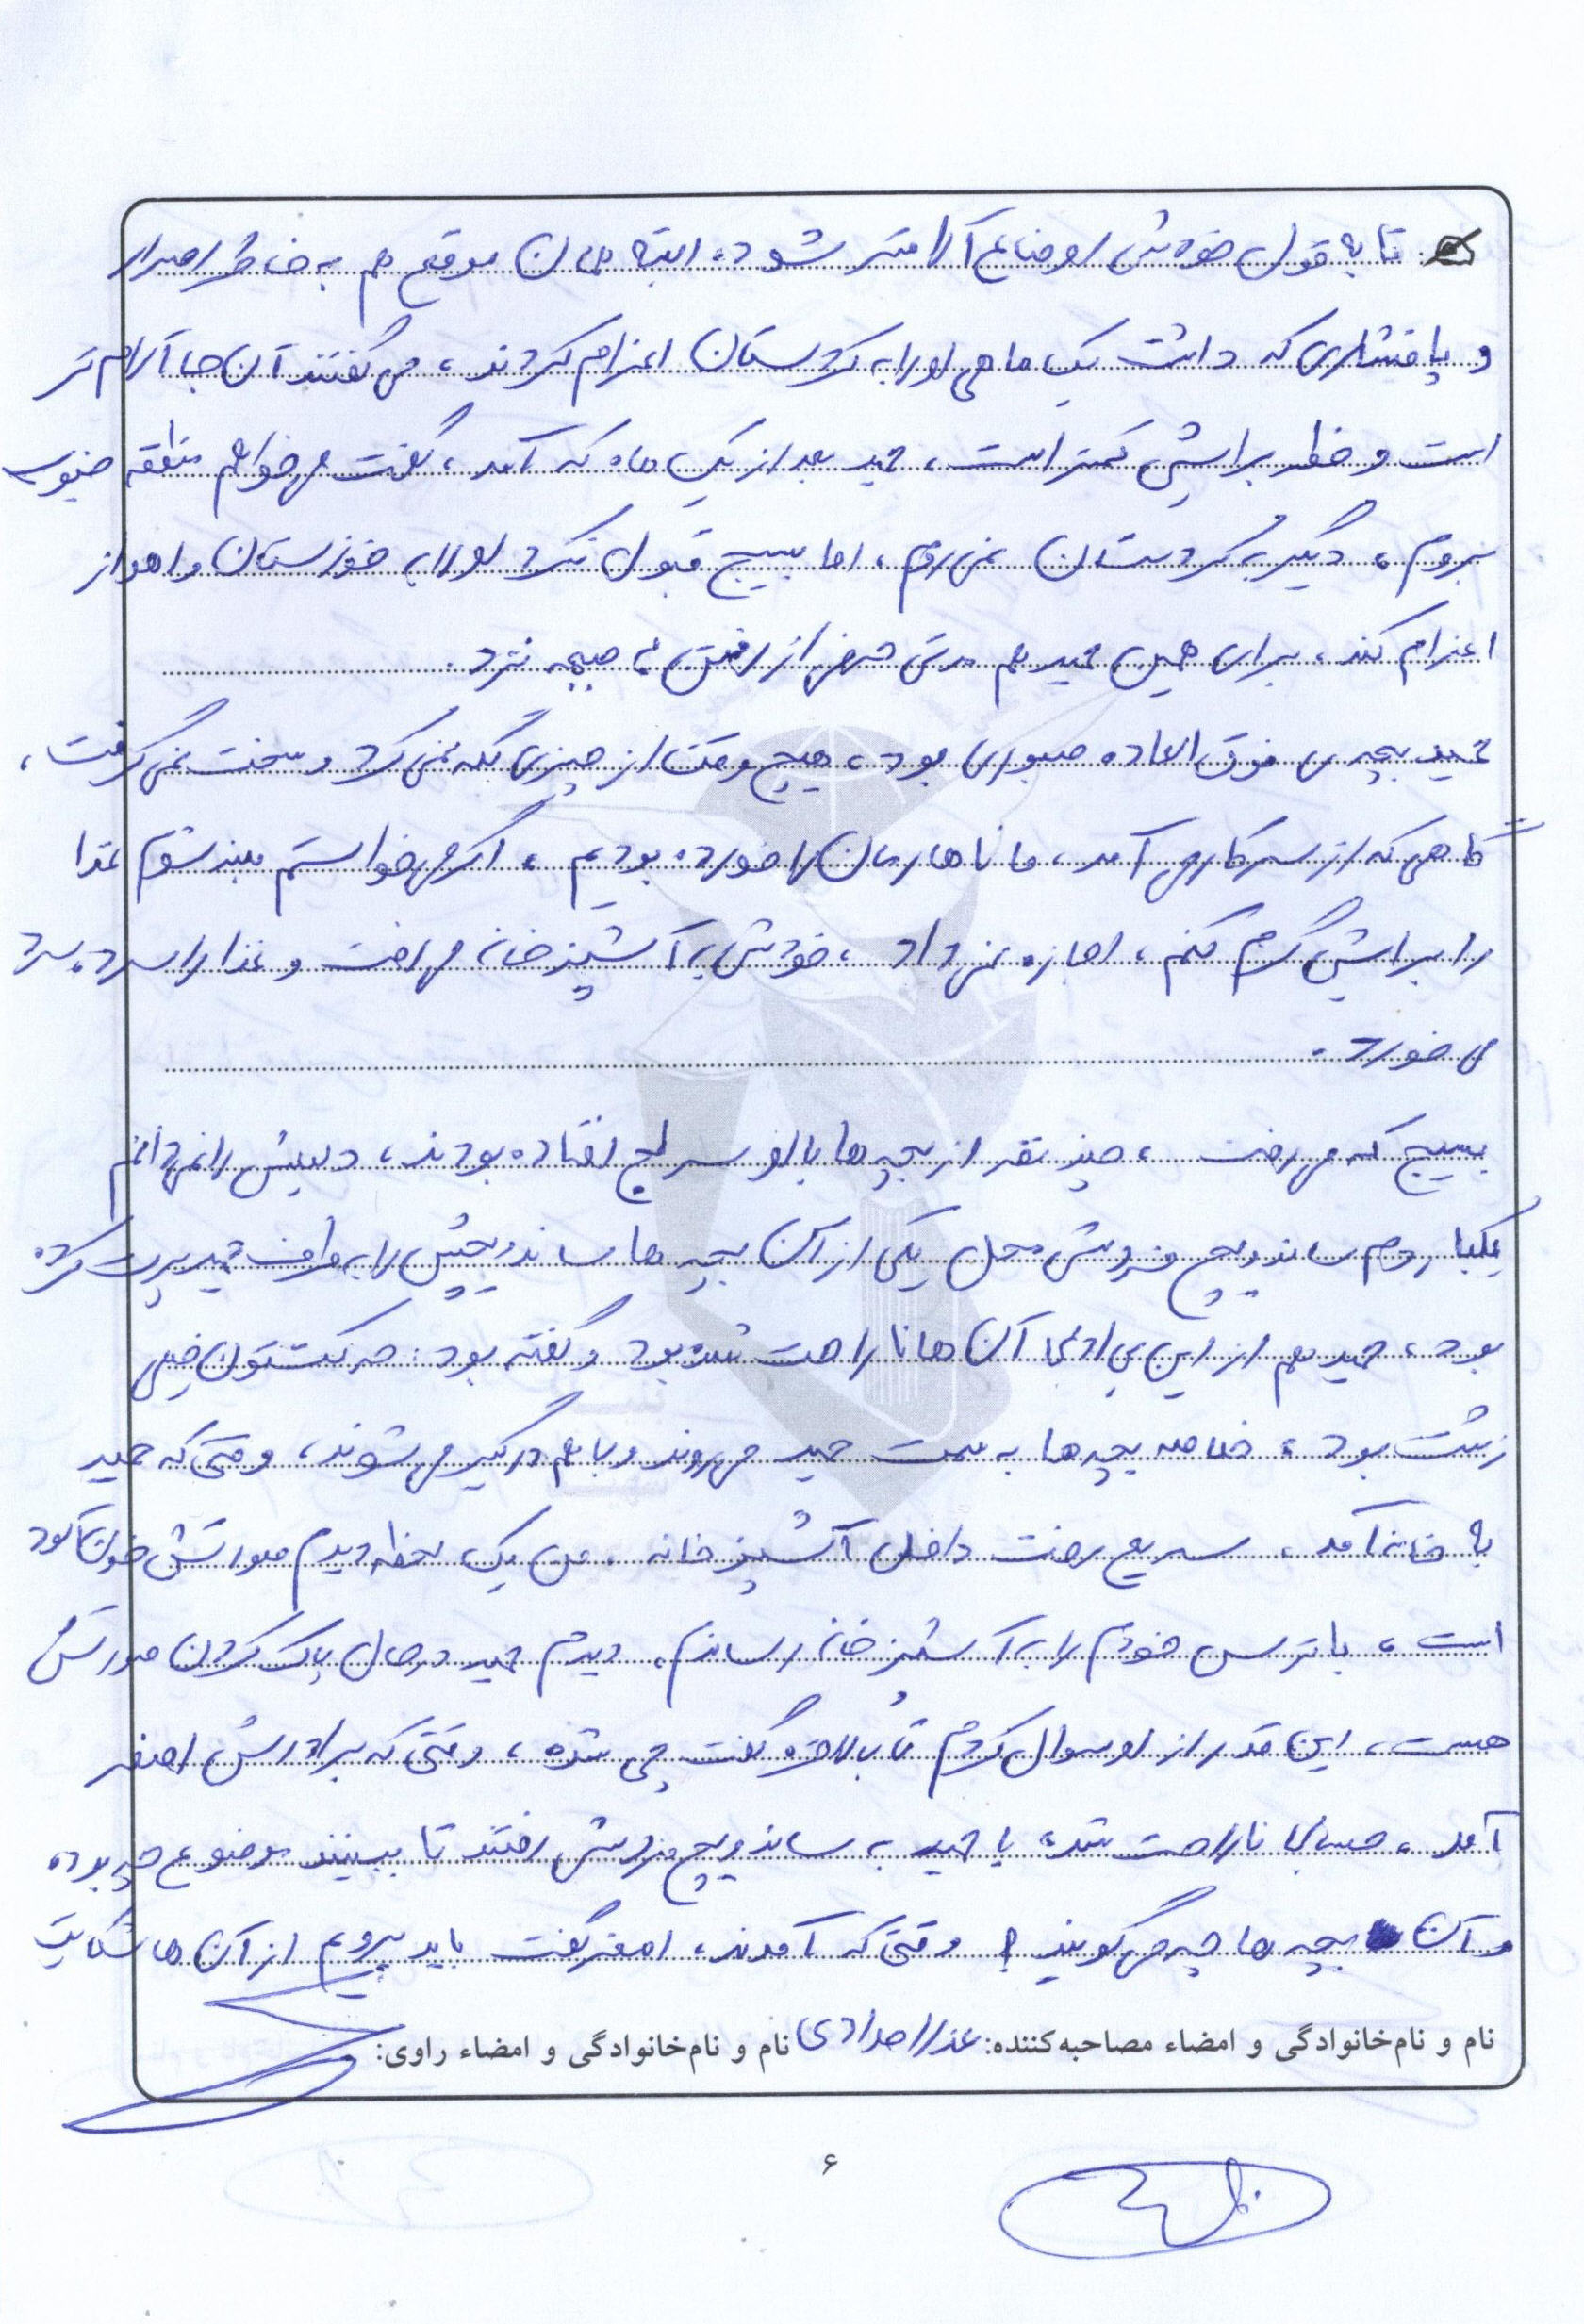 تا به قول خودش اوضاع آرامتر شود. البته همان موقع هم به خاطر اصرار
و پافشاری که داشت یک ماهی او را به کردستان اعزام کردند، می گفتند آن جا آرام تر
است و خطر برایش کمتر است، حمید بعد از یک ماه که آمد، گفت می خواهم منطقه جنوب
بروم، دیگر به کردستان نمی روم، اما بسیج قبول نکرد او را به خوزستان و اهواز
اعزام کند، برای همین حمید هم مدتی از رفتن به جبهه نزد.
حمید بچه ی فوق العاده صبوری بود، هیچ وقت از چیزی گله نمی کرد و سخت نمی گرفت،
گاهی که از سر کار می آمد، ما ناهارمان را خورده بودیم، اگر می خواستم بلند شوم غذا
را برایش گرم کنم، اجازه نمی داد، خودش به آشپزخانه می رفت و غذا را سرد سرد
می خورد.
بسیج که می رفت، چند نفر از بچه ها با او سر لج افتاده بودند، دلیلش را نمی دانم
یکبار دم ساندویچ فروشی محل یکی از آن بچه ها ساندویچش را به طرف حمید پرت کرده
بود، حمید هم از این بی ادبی آن ها ناراحت شده بود و گفته بود: حرکتتون خیلی
زشت بود، خلاصه بچه ها به سمت حمید می روند و با هم درگیر می شوند، وقتی که حمید
به خانه آمد، سریع رفت داخل آشپزخانه، من یک لحظه دیدم صورتش خون آلود
است، با ترس خودم را به آشپزخانه رساندم، دیدم حمید در حال پاک کردن صورتش
هست، این قدر از او سوال کردم تا بالاخره گفت چی شده، وقتی که برادرش اصغر
آمد، حسابی ناراحت شد، با حمید به ساندویچ فروشی رفتند تا ببینند موضوع چه بوده
و آن بچه ها چه می گویند؟ وقتی که آمدند، اصغر گفت باید برویم از آن ها شکایت
نام و نام خانوادگی و امضاء مصاحبه کننده: عذرا مرادی نام و نام خانوادگی و امضاء راوی:
۶